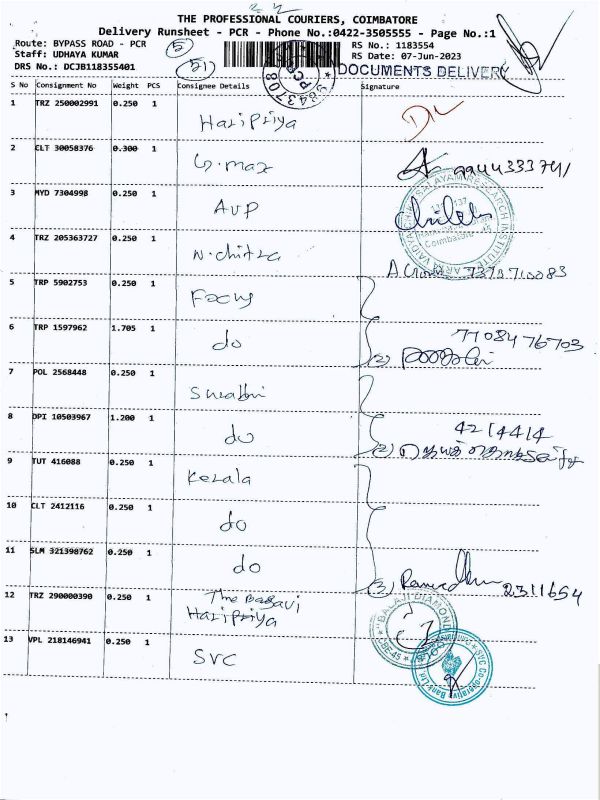 THE PROFESSIONAL COURIERS, COIMBATORE
Delivery Runsheet - PCR - Phone No.:0422-3505555 - Page No.:1
Route: BYPASS ROAD - PCR
Staff: UDHAYA KUMAR
DRS No.: DCJB118355401
5
51
RS No.: 1183554
RS Date: 07-Jun-2023
DOCUMENTS DELIVERY
PCR
9843708
S No Consignment No Weight PCS Consignee Details Signature
1 TRZ 250002991 0.250 1 Haripriya
2 CLT 30058376 0.300 1 G.max 9944333741
3 MYD 7304998 0.250 1 AVP
4 TRZ 205363727 0.250 1 N.chitra 7373710083
5 TRP 5902753 0.250 1 Focus
6 TRP 1597962 1.705 1 do (2) 7108476703
7 POL 2568448 0.250 1 Surabhi
8 DPI 10503967 1.200 1 do (2) 4214414
9 TUT 416088 0.250 1 Kerala
10 CLT 2412116 0.250 1 do
11 SLM 321398762 0.250 1 do (3) 2311654
12 TRZ 290000390 0.250 1 Haripriya
BALAJI DIAMOND
CBE-45
13 VPL 218146941 0.250 1 SVC
SVC Co-operative Bank Ltd
Coimbatore